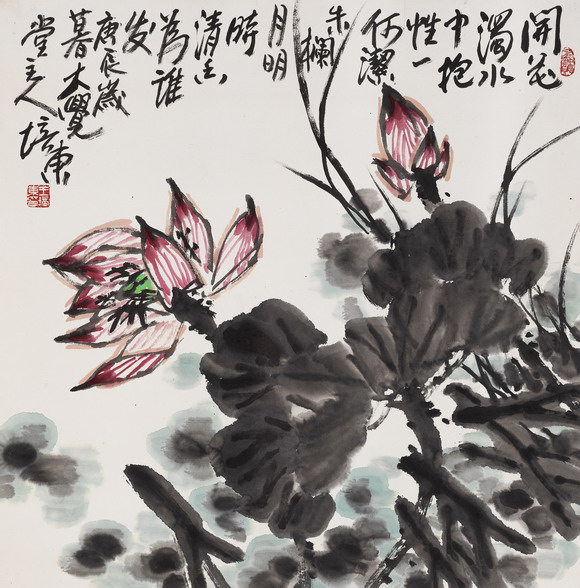 開花
濁水
中抱
性一
何潔
朱欄
月明
時
清香
為誰
發
庚辰歲
暮大覺
堂主人
培東